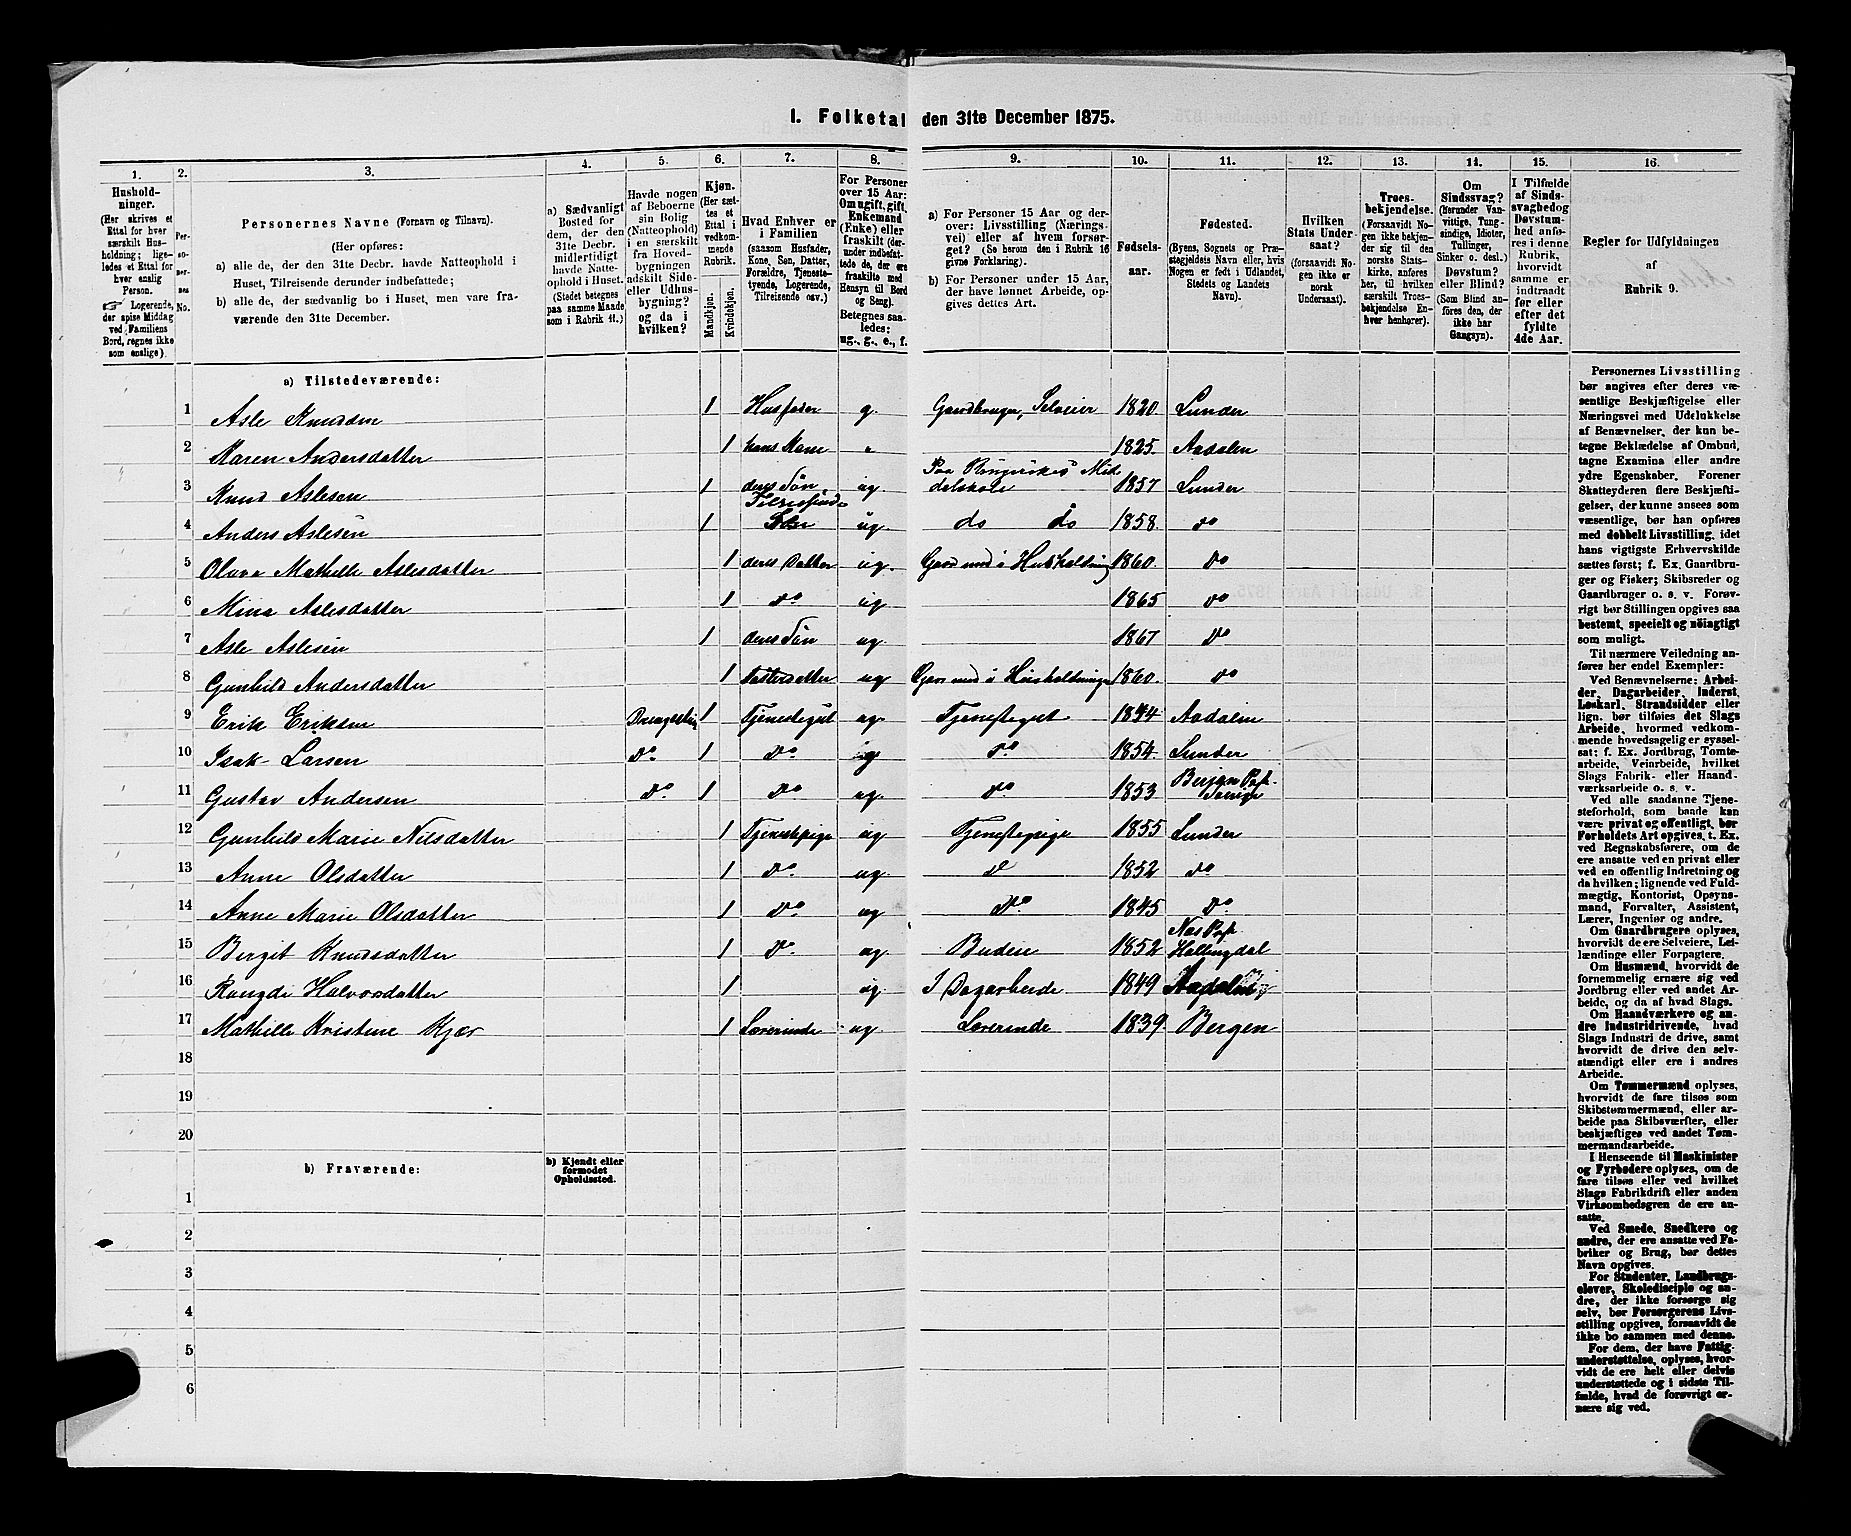 1. Folketal den 31te December 1875.
1. 2. 3. 4. 5. 6. 7. 8. 9. 10. 11. 12. 13. 14. 15. 16.
Hushold-
ninger.
(Her skrives et
Ettal for hver
særskilt Hus-
holdning; lige-
ledes et Ettal for
hver enslig
Person.
☞ Logerende,
der spise Middag
ved Familiens
Bord, regnes ikke
som enslige).
Per-
so-
ner-
nes
No.
Personernes Navne (Fornavn og Tilnavn).
(Her opføres:
a) alle de, der den 31te Decbr. havde Natteophold i
Huset, Tilreisende derunder indbefattede;
b) alle de, der sædvanlig bo i Huset, men vare fra-
værende den 31te December.
a) Sædvanligt
Bosted for
dem, der den
31te Decbr.
midlertidigt
havde Natte-
ophold i Huset.
(Stedet betegnes
paa samme Maade
som i Rubrik 11.)
Havde nogen
af Beboerne
sin Bolig
(Natteophold)
i en særskilt
fra Hoved-
bygningen
adskilt Side-
eller Udhus-
bygning?
og da i
hvilken?
Kjøn.
(Her sæt-
tes et
Ettal i
vedkom-
mende
Rubrik.
Mandkjøn.
Kvindekjøn.
Hvad Enhver er
i Familien
(saasom Husfader,
Kone, Søn, Datter,
Forældre, Tjeneste-
tyende, Logerende,
Tilreisende osv.)
For Personer
over 15 Aar:
Om ugift, gift,
Enkemand
(Enke) eller
fraskilt (der-
under indbefat-
tede de, der ere
fraskilte med
Hensyn til Bord
og Seng).
Betegnes saa-
ledes:
ug., g., e., f.
a) For Personer 15 Aar og der-
over: Livsstilling (Nærings-
vei) eller af hvem forsør-
get? (Se herom den i Rubrik 16
givne Forklaring).
b) For Personer under 15 Aar,
der have lønnet Arbeide, op-
gives dettes Art.
Fødsels-
aar.
Fødested.
(Byens, Sognets og Præ-
stegjeldets Navn eller, hvis
Nogen er født i Udlandet,
Stedets og Landets
Navn).
Hvilken
Stats Under-
saat?
(forsaavidt No-
gen ikke er
norsk
Undersaat).
Troes-
bekjendelse.
(Forsaavidt No-
gen ikke bekjen-
der sig til den
norske Stats-
kirke, anføres
her, til hvilken
særskilt Troes-
bekjendelse En-
hver henhører).
Om
Sindssvag?
(Herunder Van-
vittige, Tung-
sindige, Idioter,
Tullinger,
Sinker o. desl.)
Døvstum?
eller Blind?
(Som Blind an-
føres den, der
ikke har
Gangsyn).
I Tilfælde
af Sinds-
svaghed og
Døvstum-
hed anfø-
res i denne
Rubrik,
hvorvidt
samme er
indtraadt
før eller
efter det
fyldte
4de Aar.
Regler for Udfyldningen
af
Rubrik 9.
a) Tilstedeværende:
1 Asle Knudsen 1 Husfader g. Gaardbruger, Selveier 1820. Lunder
2 Maren Andersdatter 1 hans Kone „ 1825. Aadalen
3 Knud Aslesen 1 deres Søn ug Paa Ringerikes Mid
delskole 1857 Lunder
4 Anders Aslesen 1 ug do do 1858. do
5 Olava Mathilde Aslesdatter 1 deres Datter ug. Gaar med i Husholdning 1860. do
6 Mina Aslesdatter 1 do ug 1865 do
7 Asle Aslesen 1 deres Søn ug 1867 do
8 Gunhild Andersdatter 1 ug Gaar med i Husholdningen 1860. do
9 Erik Eriksen 1 Tjenestegut ug Tjenestegut 1844 Aadalen
10 Isak Larsen do 1 do ug do 1854. Lunder
11 Gustav Andersen do 1 do ug do 1853
12 Gunhild Marie Nilsdatter 1 Tjenestepige ug Tjenestepige 1855 Lunder
13 Anne Olsdatter 1 do ug do 1852 do
14 Anne Marie Olsdatter 1 do ug do 1845 do
15 Bergit Knudsdatter 1 do ug Budeie 1852 Næs Pgf
Hallingdal
16 Rangdi Halvorsdatter 1 ug I Dagarbeide 1849 Aadalen
17 Mathilde Kristine Kjær 1 Lærerinde ug Lærerinde 1839. Bergen
18
19
20
b) Fraværende:
b) Kjendt eller
formodet
Opholdssted.
1
2
3
4
5
6
Personernes Livsstilling
bør angives efter deres væ-
sentlige Beskjæftigelse eller
Næringsvei med Udelukkelse
af Benævnelser, der kun be-
tegne Beklædelse af Ombud,
tagne Examina eller andre
ydre Egenskaber. Forener
Skatteyderen flere Beskjæfti-
gelser, der kunne ansees som
væsentlige, bør han opføres
med dobbelt Livsstilling, idet
hans vigtigste Erhvervskilde
sættes først; f. Ex. Gaardbru-
ger og Fisker; Skibsreder og
Gaardbruger o. s. v. Forøv-
rigt bør Stillingen opgives saa
bestemt, specielt og nøiagtigt
som muligt.
Til nærmere Veiledning an-
føres her endel Exempler:
Ved Benævnelserne: Arbei-
der, Dagarbeider, Inderst,
Løskarl, Strandsidder eller
lign. bør tilføies det Slags
Arbeide, hvormed vedkom-
mende hovedsagelig er syssel-
sat; f. Ex. Jordbrug, Tomte-
arbeide, Veiarbeide, hvilket
Slags Fabrik- eller Haand-
værksarbeide o. s. v.
Ved alle saadanne Tjene-
steforhold, som baade kan
være privat og offentligt, bør
Forholdets Art opgives, t. Ex.
ved Regnskabsførere, om de
ere ansatte ved en privat eller
ved en offentlig Indretning og
da hvilken; lignende ved Fuld-
mægtig, Kontorist, Opsyns-
mand, Forvalter, Assistent,
Lærer, Ingeniør og andre.
Om Gaardbrugere oplyses,
hvorvidt de ere Selveiere, Lei-
lændinge eller Forpagtere.
Om Husmænd, hvorvidt de
fornemmelig ernære sig ved
Jordbrug eller ved andet Ar-
beide, og da af hvad Slags.
Om Haandværkere og an-
dre Industridrivende, hvad
Slags Industri de drive, samt
hvorvidt de drive den selv-
stændigt eller ere i andres
Arbeide.
Om Tømmermænd oplyses,
hvorvidt de fare tilsøs som
Skibstømmermænd, eller ar-
beide paa Skibsværfter, eller
beskjæftiges ved andet Tøm-
mermandsarbeide.
I Henseende til Maskinister
og Fyrbødere oplyses, om de
fare tilsøs eller ved hvilket
Slags Fabrikdrift eller anden
Virksomhedsgren de ere an-
satte.
Ved Smede, Snedkere og
andre, der ere ansatte ved Fa-
briker og Brug, bør dettes
Navn opgives.
For Studenter, Landbrugs-
elever, Skoledisciple og an-
dre, der ikke forsørge sig
selv, bør Forsørgerens Livs-
stilling opgives, forsaavidt de
ikke bo sammen med denne.
For dem, der have Fattig-
understøttelse, oplyses, hvor-
vidt de ere helt eller delvis
understøttede og i sidste Til-
fælde, hvad de forøvrigt er-
nære sig ved.